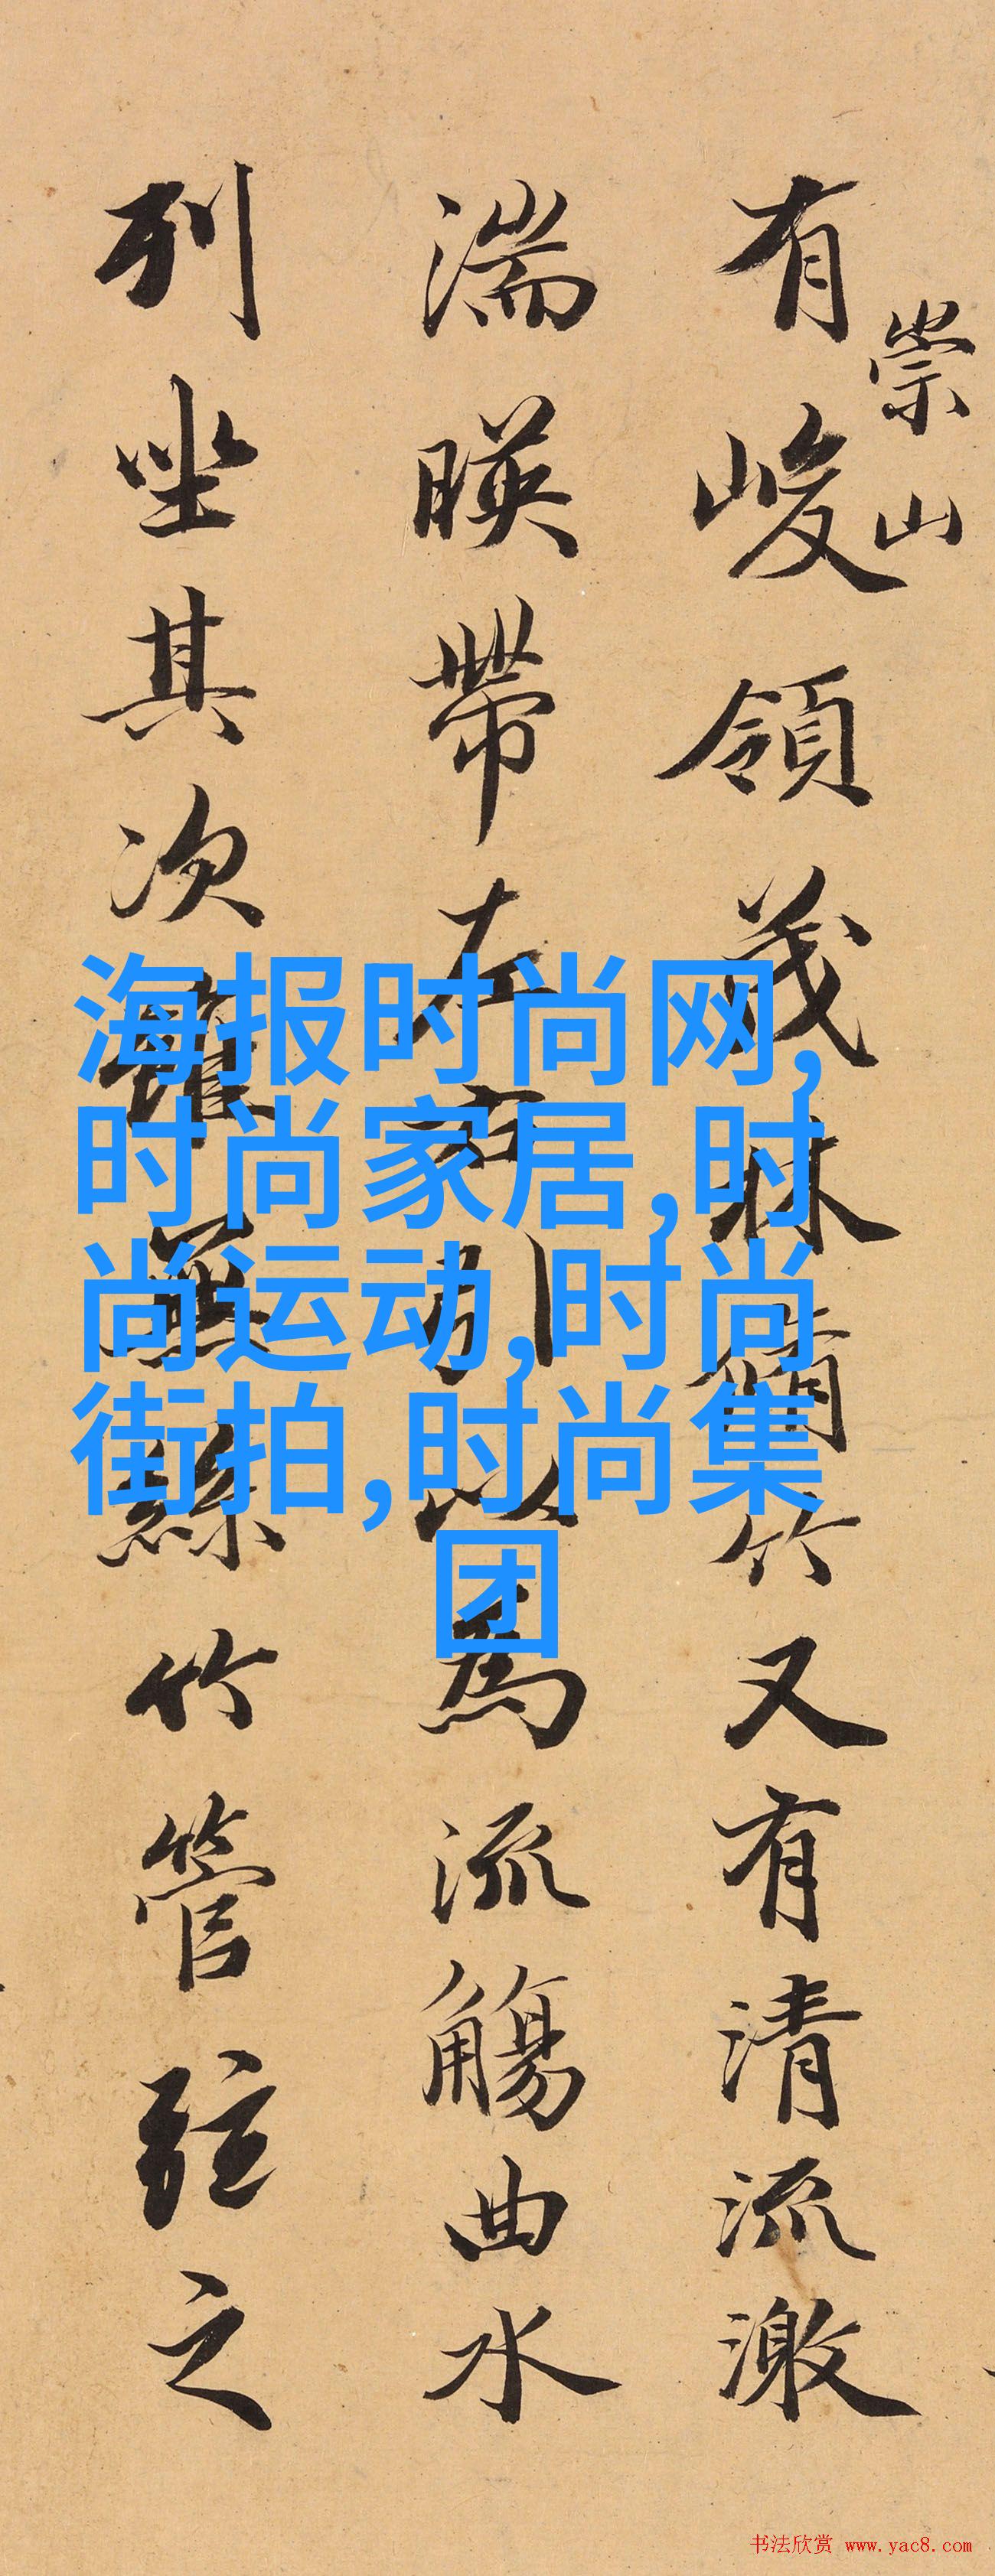 崇山
有峻領茂林脩竹又有清流激
湍暎帶左右引以為流觴曲水
列坐其次雖無絲竹管弦之
海报时尚网,
时尚家居,时
尚运动,时尚
街拍,时尚集
团
书法欣赏 www.yac8.com